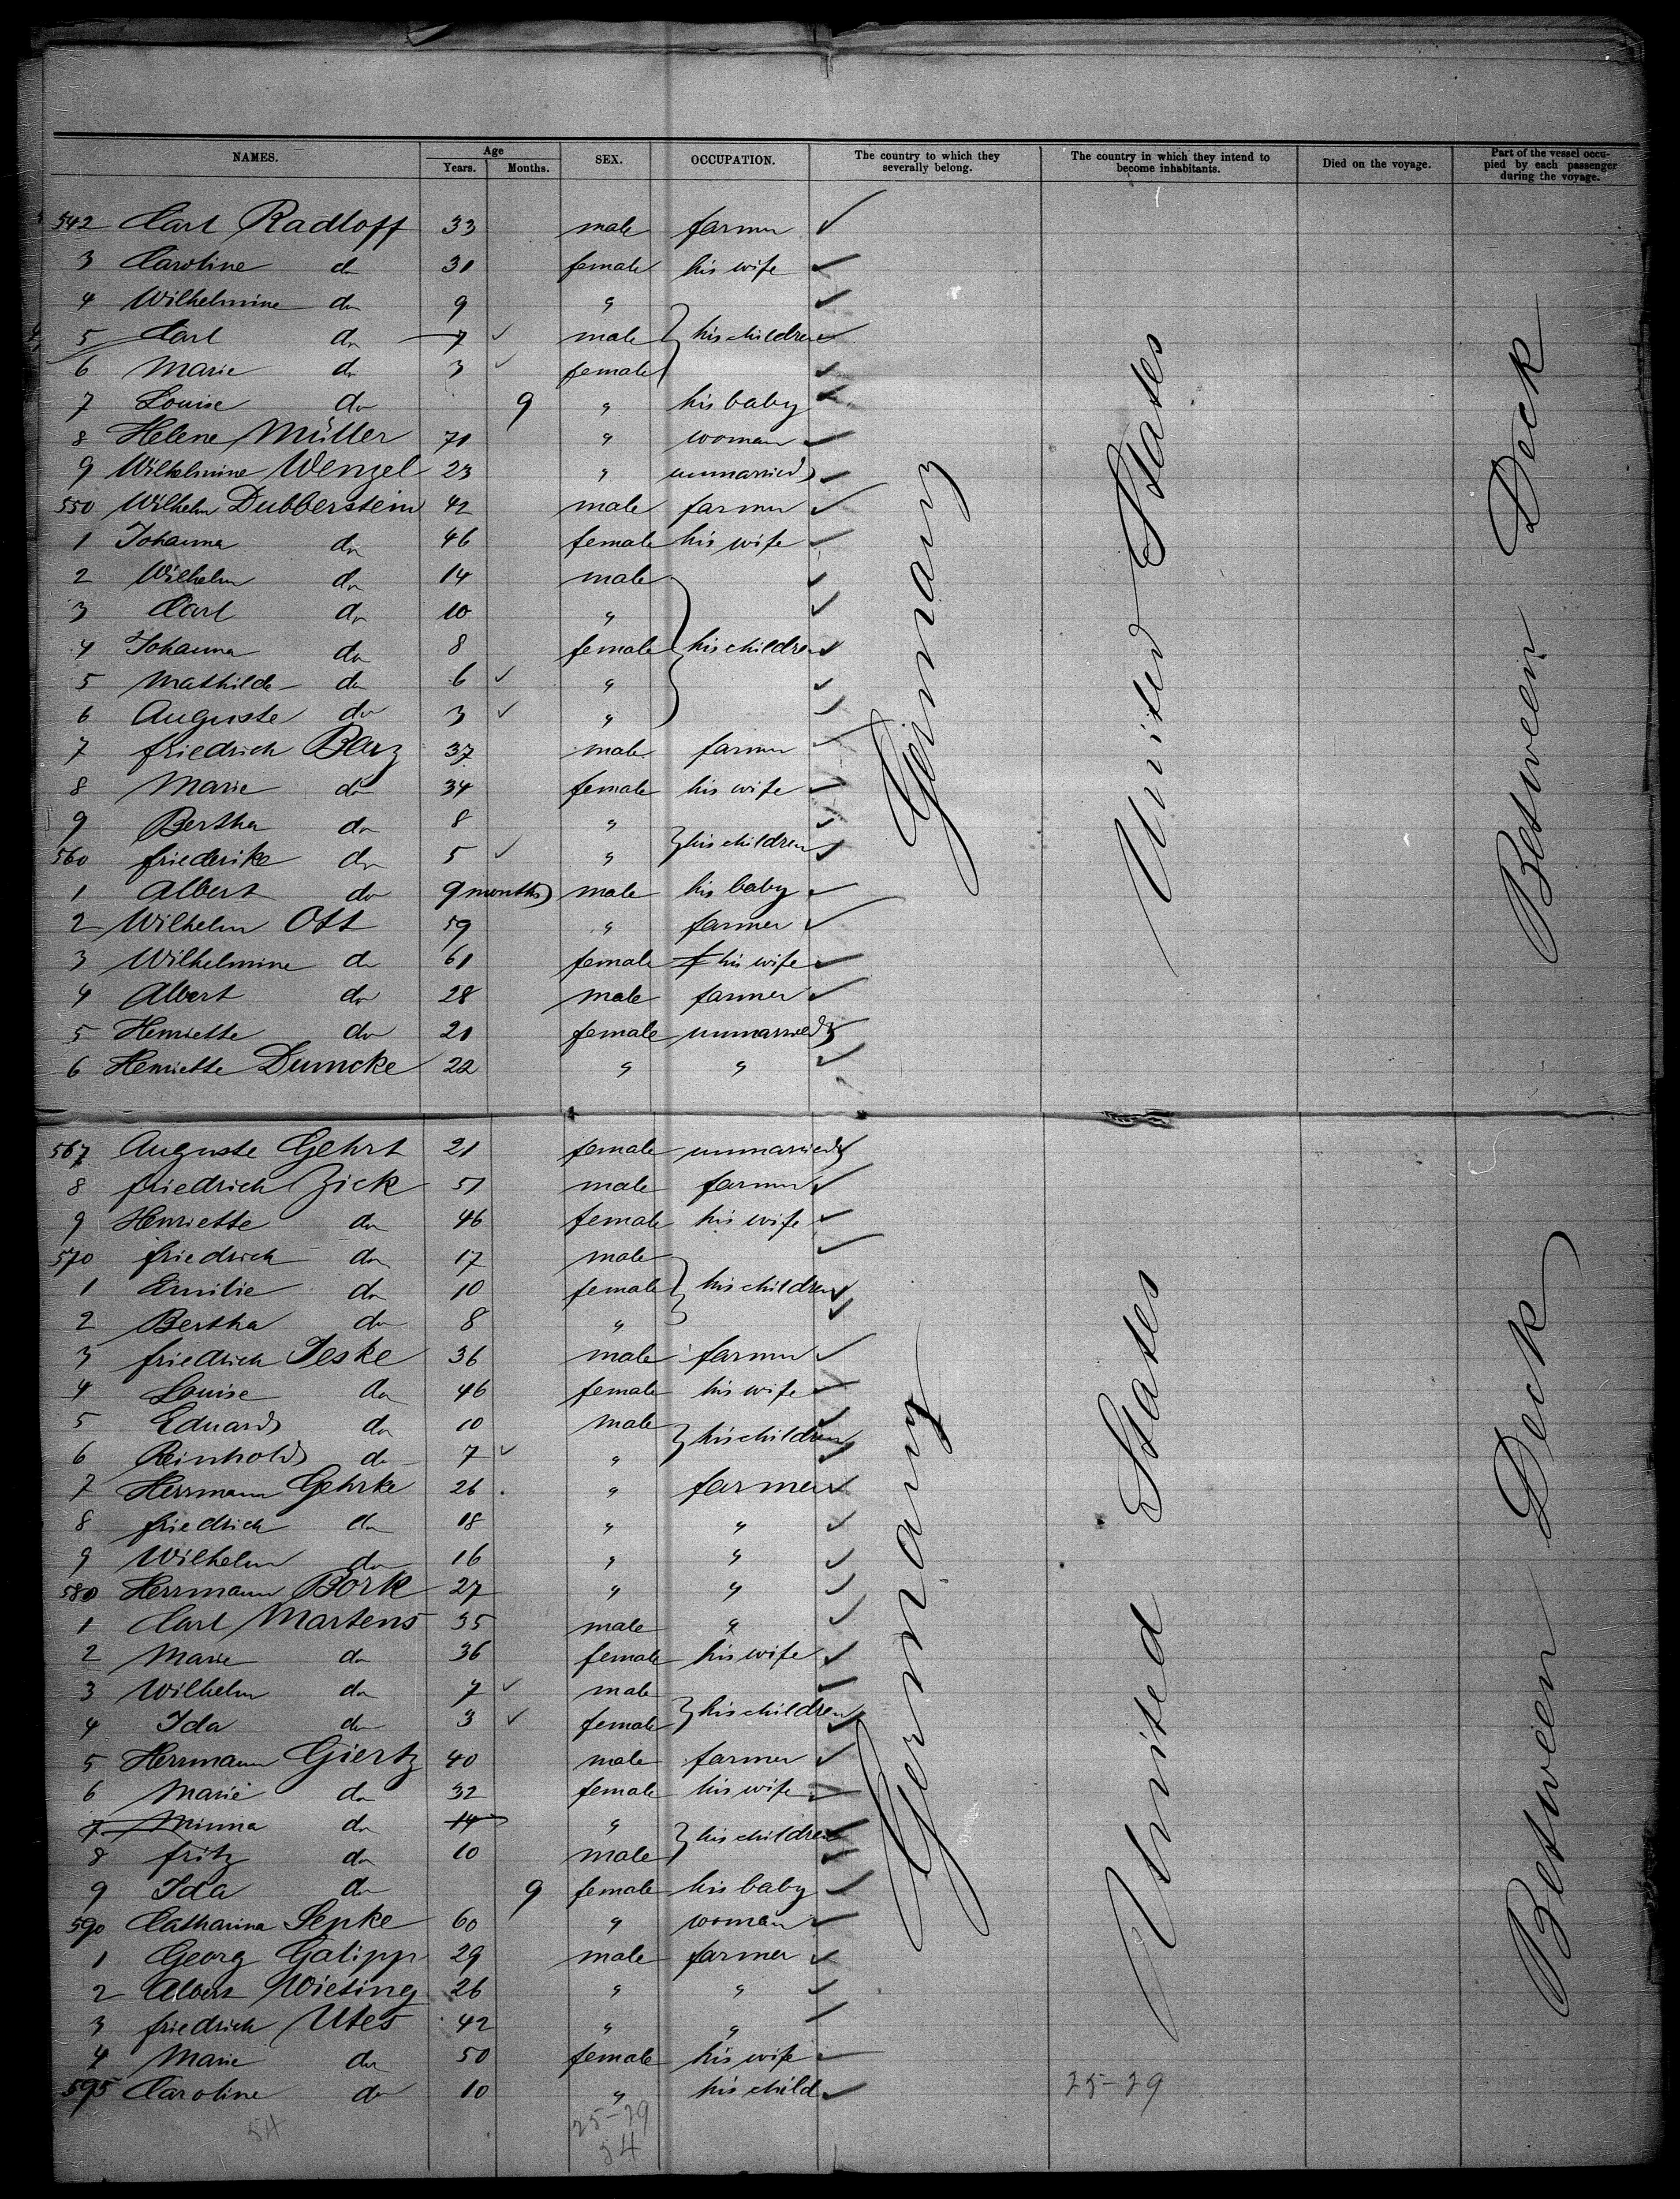 NAMES. Age Years. Months. SEX. OCCUPATION. The country to which they severally belong. The country in which they intend to become inhabitants. Died on the voyage. Part of the vessel occupied by each passenger during the voyage.
542 Carl Radloff 33 male farmer
3 Caroline do 31 female his wife
4 Wilhelmine do 9 "
5 Carl do 7 male his children
6 Marie do 3 female
7 Louise do 9 " his baby
8 Helene Müller 71 " woman
9 Wilhelmine Wenzel 23 " unmarried
550 Wilhelm Dubberstein 42 male farmer
1 Johanna do 46 female his wife
2 Wilhelm do 14 male
3 Carl do 10 "
4 Johanna do 8 female his children
5 Mathilde do 6 "
6 Auguste do 3 "
7 friedrich Barz 37 male farmer
8 Marie do 34 female his wife
9 Bertha do 8 "
560 friederike do 5 " his children
1 Albert do 9 months male his baby
2 Wilhelm Ott 59 " farmer
3 Wilhelmine do 61 female his wife
4 Albert do 28 male farmer
5 Henriette do 21 female unmarried
6 Henriette Dumcke 22 " "
Germany United States Between Deck
567 Auguste Gehrt 21 female unmarried
8 friedrich Zick 51 male farmer
9 Henriette do 46 female his wife
570 friedrich do 17 male
1 Emilie do 10 female his children
2 Bertha do 8 "
3 friedrich Jeske 36 male farmer
4 Louise do 46 female his wife
5 Eduard do 10 male
6 Reinhold do 7 " his children
7 Herrmann Gehrke 26 " farmer
8 friedrich do 18 " "
9 Wilhelm do 16 " "
580 Herrmann Bork 27 " "
1 Carl Martens 35 male "
2 Marie do 36 female his wife
3 Wilhelm do 7 male
4 Ida do 3 female his children
5 Herrmann Giertz 40 male farmer
6 Marie do 32 female his wife
7 Minna do 14 "
8 fritz do 10 male his children
9 Ida do 9 female his baby
590 Catharina Sepke 60 " woman
1 Georg Galipp 29 male farmer
2 Albert Wieting 26 " "
3 friedrich Utes 42 " "
4 Marie do 50 female his wife
595 Caroline do 10 " his child
Germany United States Between Deck
25-29
54 25-29
54